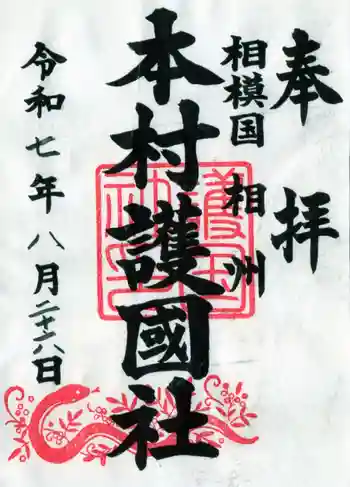 奉拝
相模国 相州
本村護國社
令和七年八月二十八日